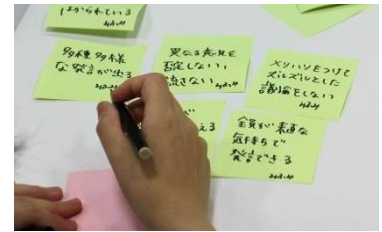 はかられている
多種多様
な発言が出る
異なる意見を
否定しない、
流さない
メリハリをつけて
ズルズルとした
議論をしない
が
える
全員が素直な
気持ちで
発言できる